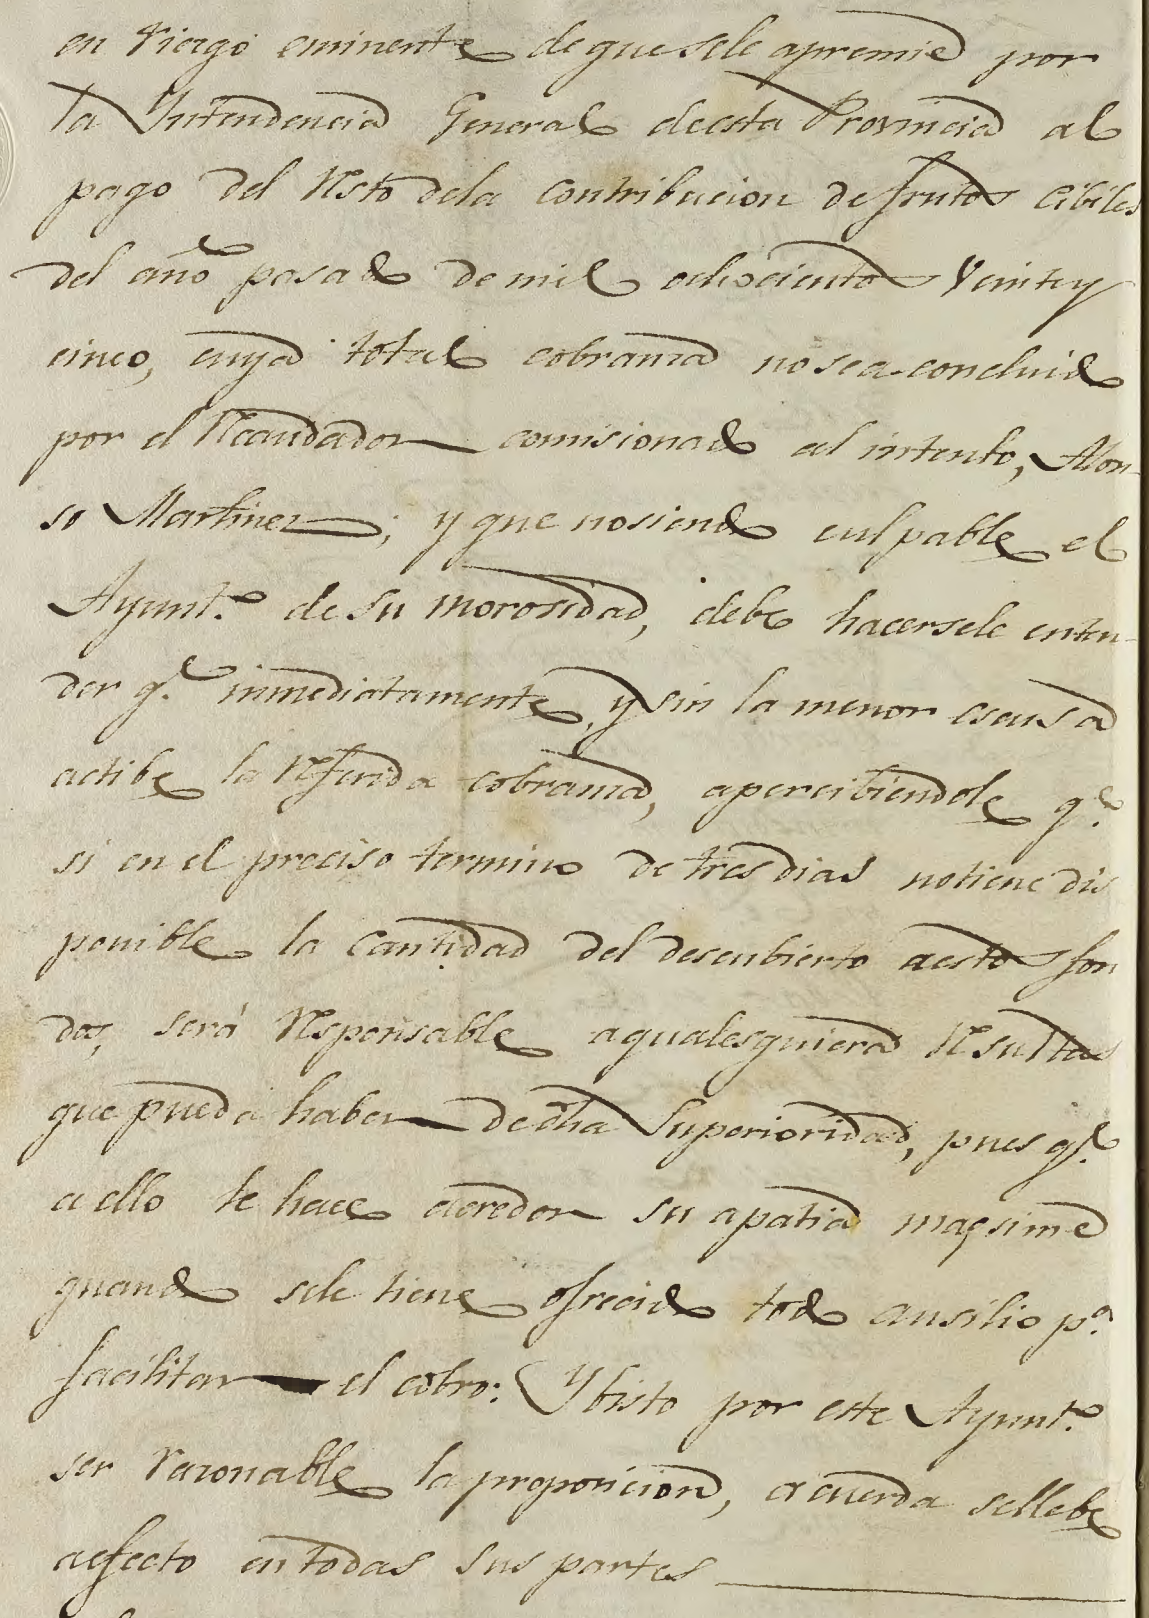 en riergo eminente de que sele apremie por
la Intendencia General deesta Provincia al
pago del resto dela contribucion de frutos cibiles
del año pasado de mil ochocientos veinte y
cinco, cuya total cobranza no sea concluido
por el recaudador comisionado al intento, Alon-
so Martinez; y que nosiendo culpable el
Ayunt.º de su morosidad, debe hacersele enten-
der q.e inmediatamente y sin la menor escusa
actibe la referida cobranza, apercibiendole q.e
si en el preciso termino de tres dias notiene dis
ponible la cantidad del descubierto aestos fon
dos, será responsable aqualesquiera resultas
que pueda haber de dha Superioridad, pues q.e
a ello le hace acredor su apatia maqsime
quando sele tiene ofrecido todo ausilio p.a
facilitar el cobro: Y bisto por este Ayunt.º
ser razonable la proposicion, acuerda sellebe
aefecto en todas sus partes